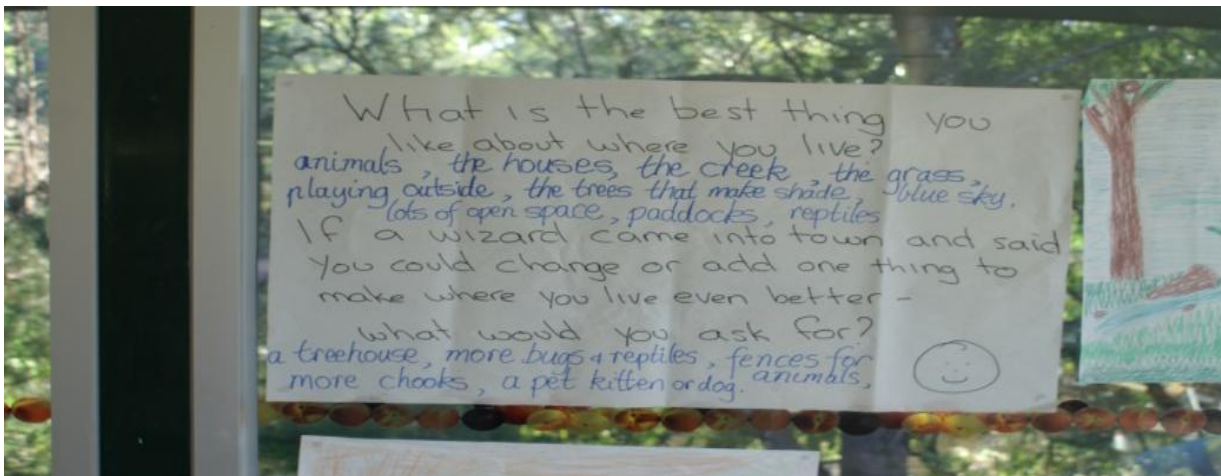 What is the best thing you
like about where you live?
animals, the houses, the creek, the grass,
playing outside, the trees that make shade, blue sky.
lots of open space, paddocks, reptiles
If a wizard came into town and said
you could change or add one thing to
make where you live even better -
what would you ask for?
a treehouse, more bugs + reptiles, fences for
more chooks, a pet kitten or dog. animals.